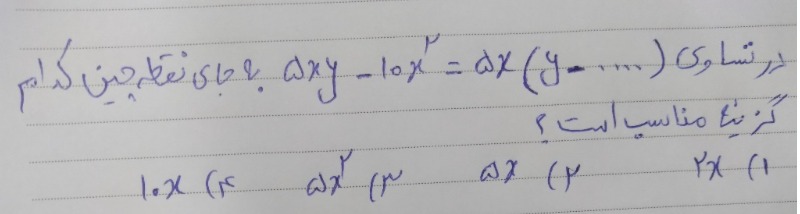 در تساوی ۵xy - ۱۰x² = ۵x(y - ....) به جای نقطه چین کدام
گزینه مناسب است؟
۱) ۲x    ۲) ۵x    ۳) ۵x²    ۴) ۱۰x